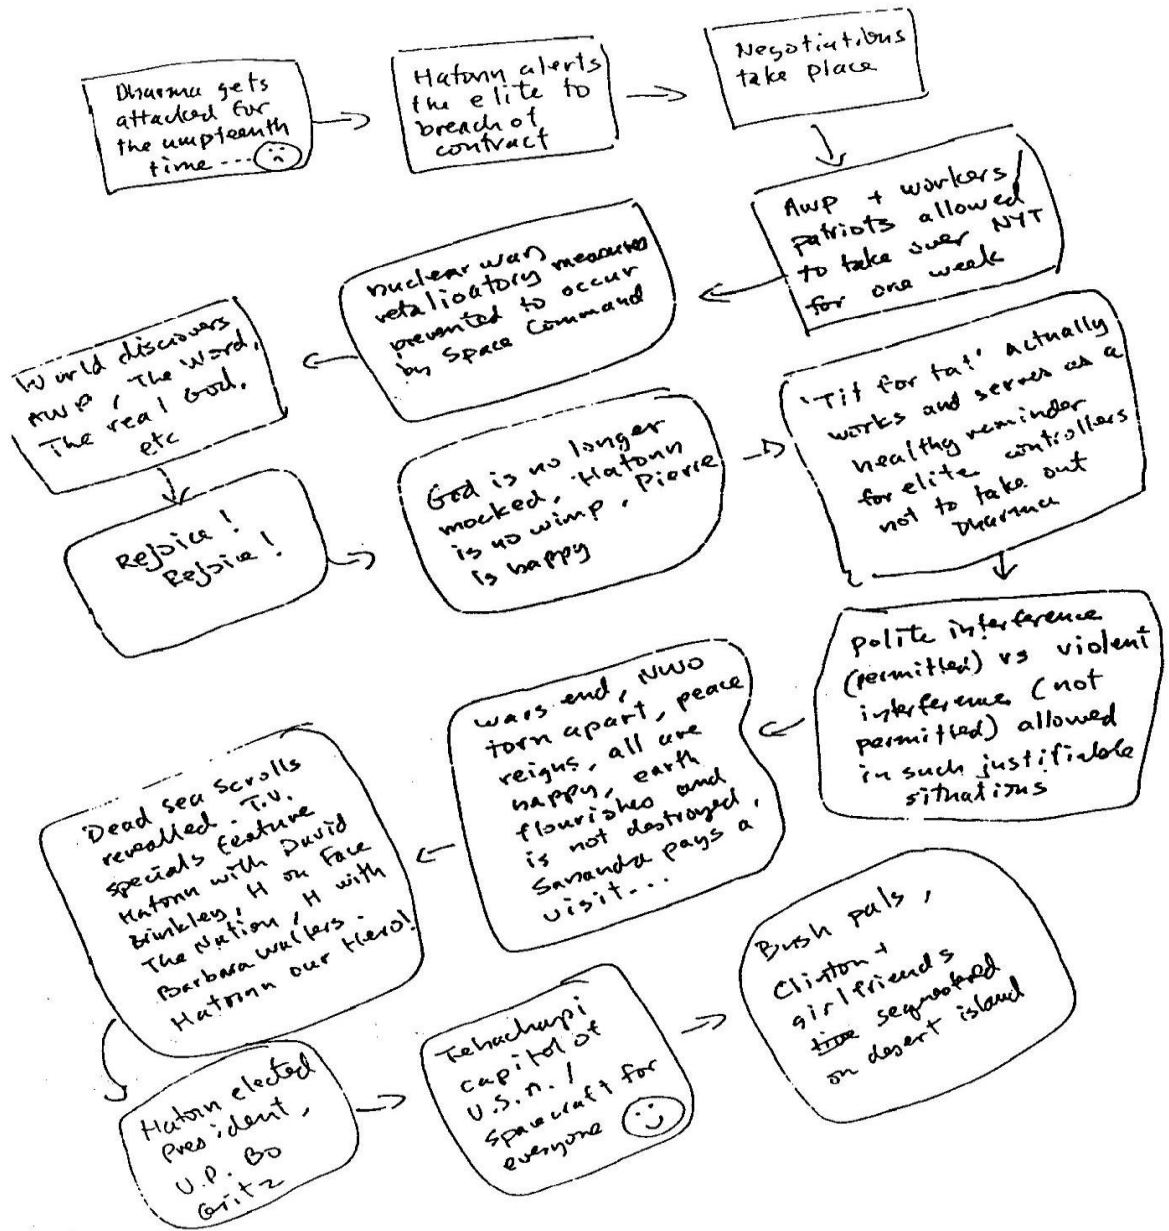 Dharma gets
attacked for
the umpteenth
time ---
Hatonn alerts
the elite to
breach of
contract
Negotiations
take place
AWP + workers/
patriots allowed
to take over NYT
for one week
nuclear war,
retalioatory measures
prevented to occur
by Space Command
World discovers
AWP, The Word,
The real God,
etc
Rejoice!
Rejoice!
God is no longer
mocked, Hatonn
is no wimp, Pierre
is happy
'Tit for tat' actually
works and serves as a
healthy reminder
for elite controllers
not to take out
Dharma
polite interference
(permitted) vs violent
interference (not
permitted) allowed
in such justifiable
situations
wars end, NWO
torn apart, peace
reigns, all are
happy, earth
flourishes and
is not destroyed,
Sananda pays a
visit...
Dead sea scrolls
revealled. T.V.
specials feature
Hatonn with David
Brinkley, H on Face
The Nation, H with
Barbara Walters.
Hatonn our Hero!
Hatonn elected
President,
V.P. Bo
Gritz
Tehachapi
capitol of
U.S.A./
spacecraft for
everyone
Bush pals,
Clinton +
girlfriends
sequestred
on desert island